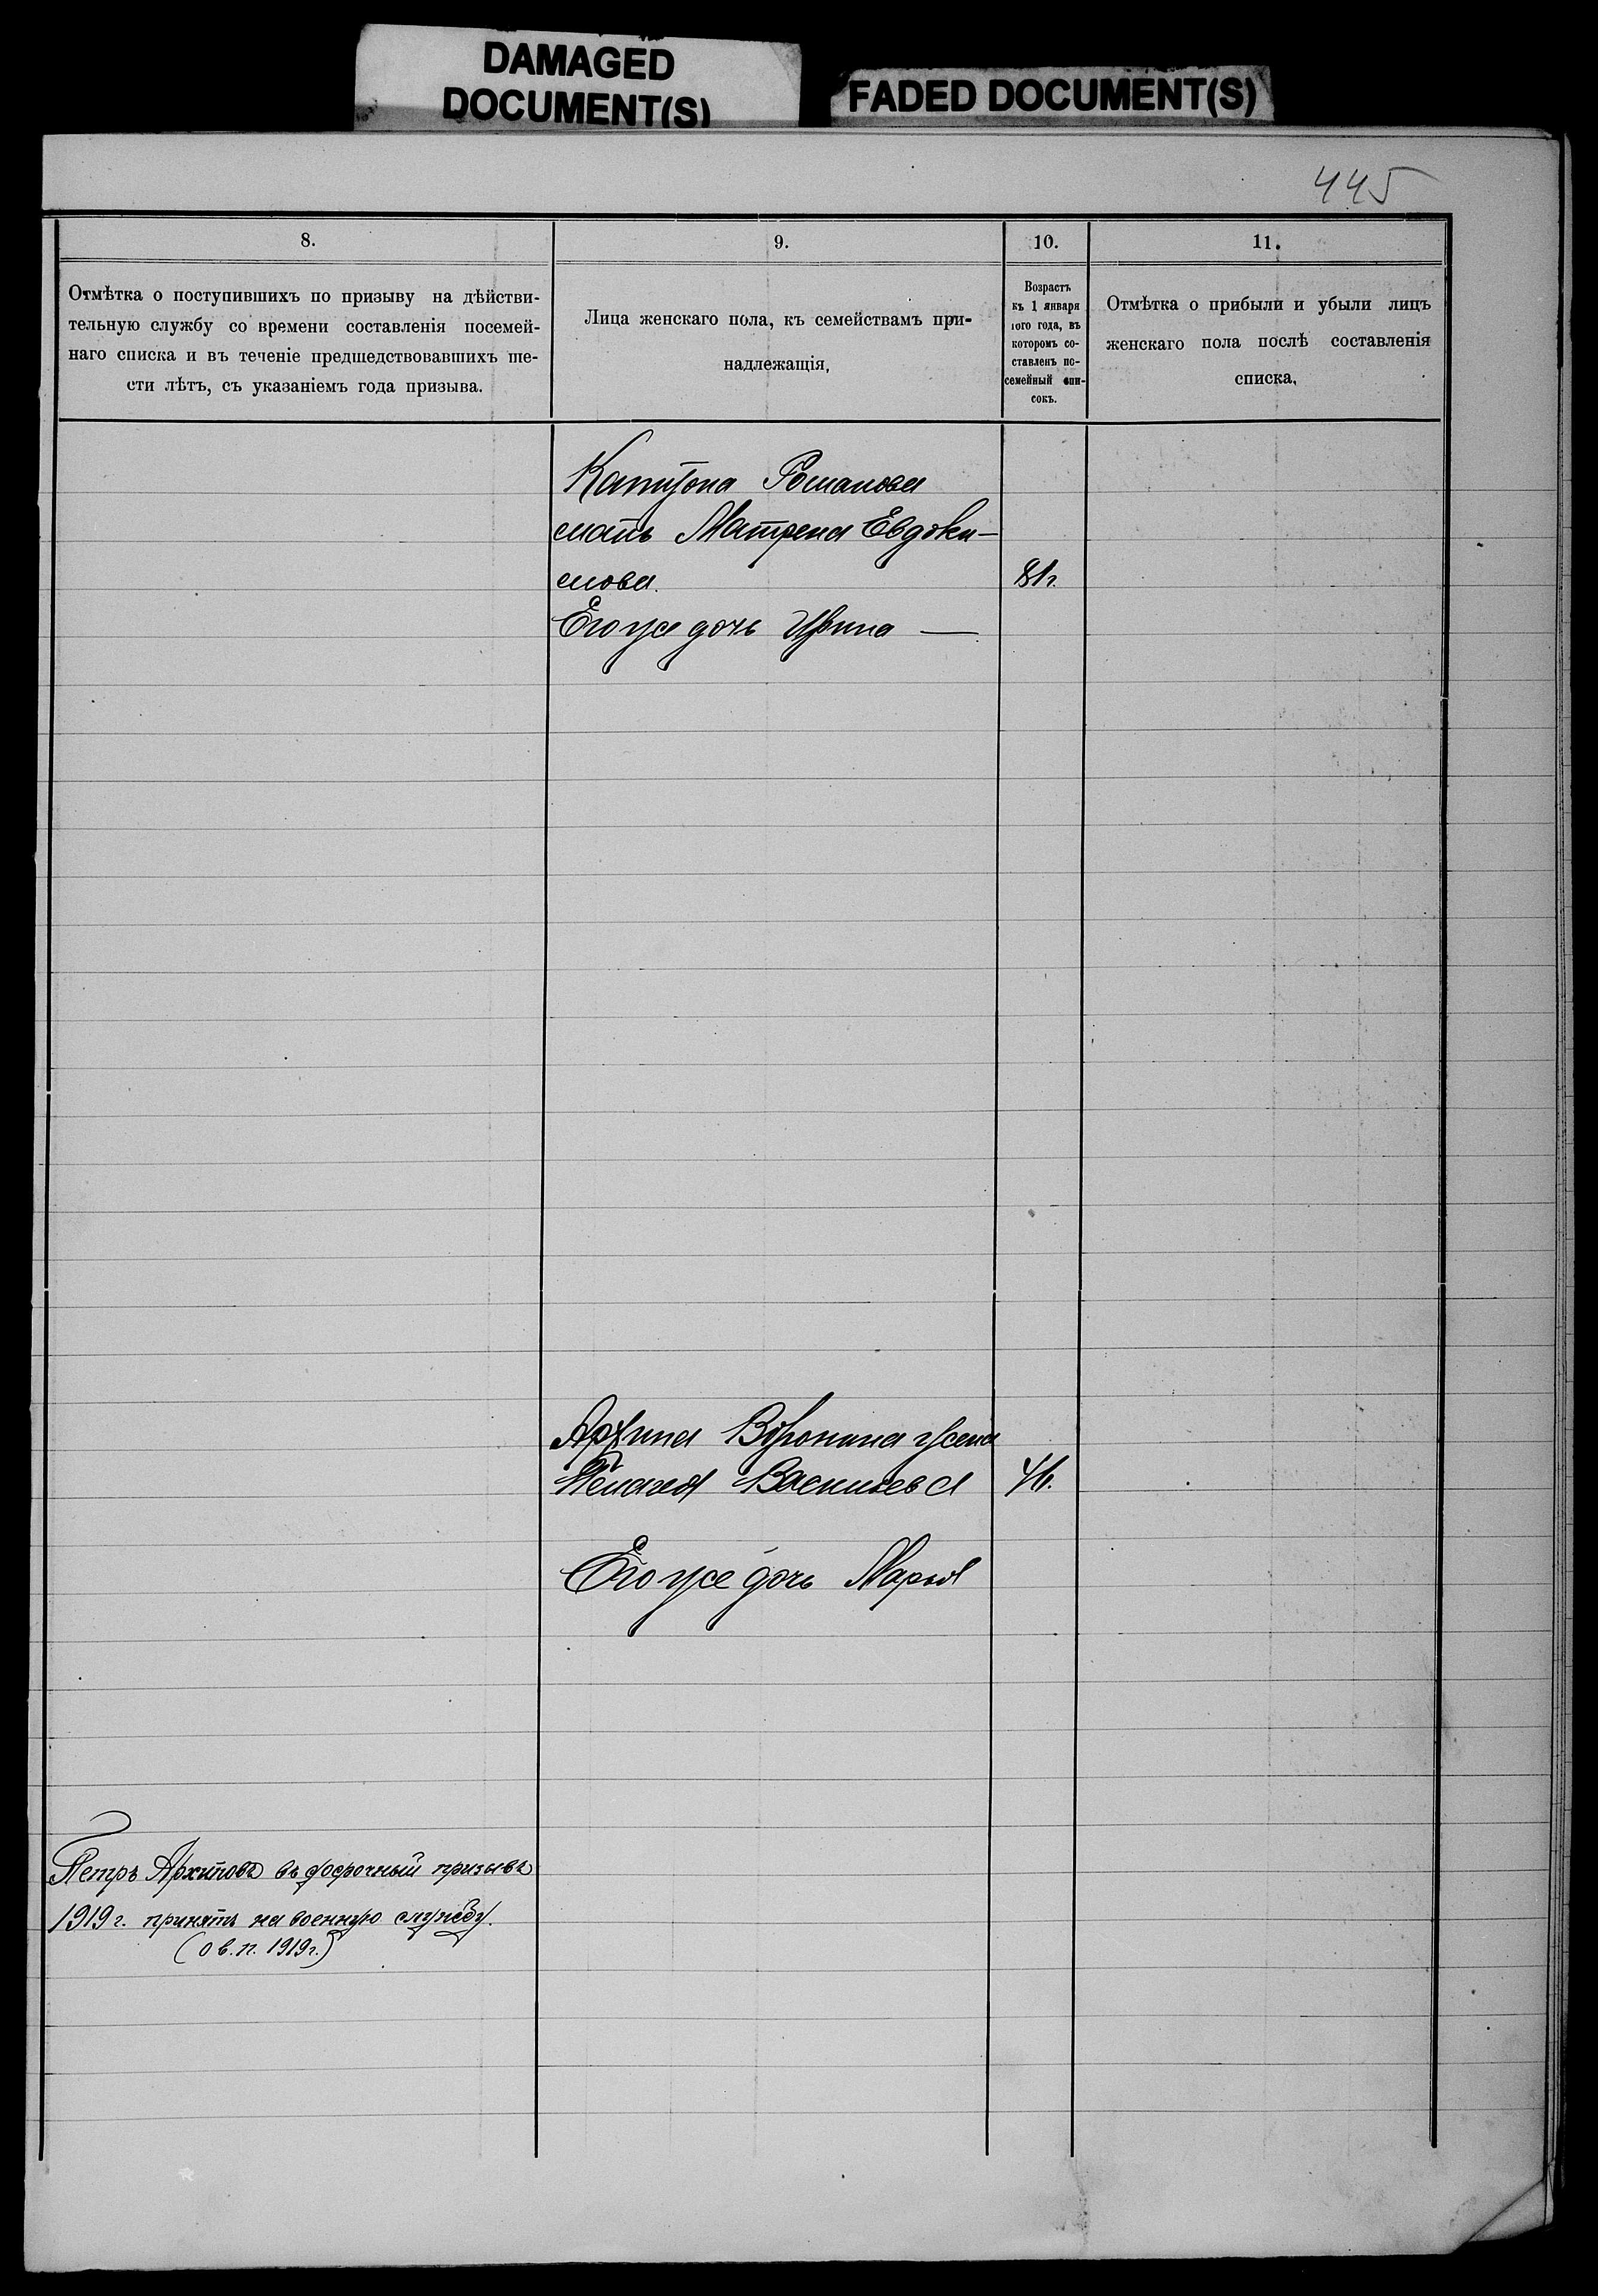 DAMAGED
DOCUMENT(S)
FADED DOCUMENT(S)
445
8.
Отмѣтка о поступившихъ по призыву на дѣйстви-
тельную службу со времени составленія посемей-
наго списка и въ теченіе предшедствовавшихъ ше-
сти лѣтъ, съ указаніемъ года призыва.
9.
Лица женскаго пола, къ семействамъ при-
надлежащія.
10.
Возрастъ
къ 1 января
того года, въ
которомъ со-
ставленъ по-
семейный спи-
сокъ.
11.
Отмѣтка о прибыли и убыли лицъ
женскаго пола послѣ составленія
списка.
Капитона Романова
мать Матрена Евдоки-
мова. 81 г.
Его же дочь Ирина —
Архипа Воронина жена
Пелагея Васильева 41.
Его же дочь Марья
Петръ Архиповъ въ досрочный призывъ
1919 г. принятъ на военную службу.
(о в. п. 1919 г.)